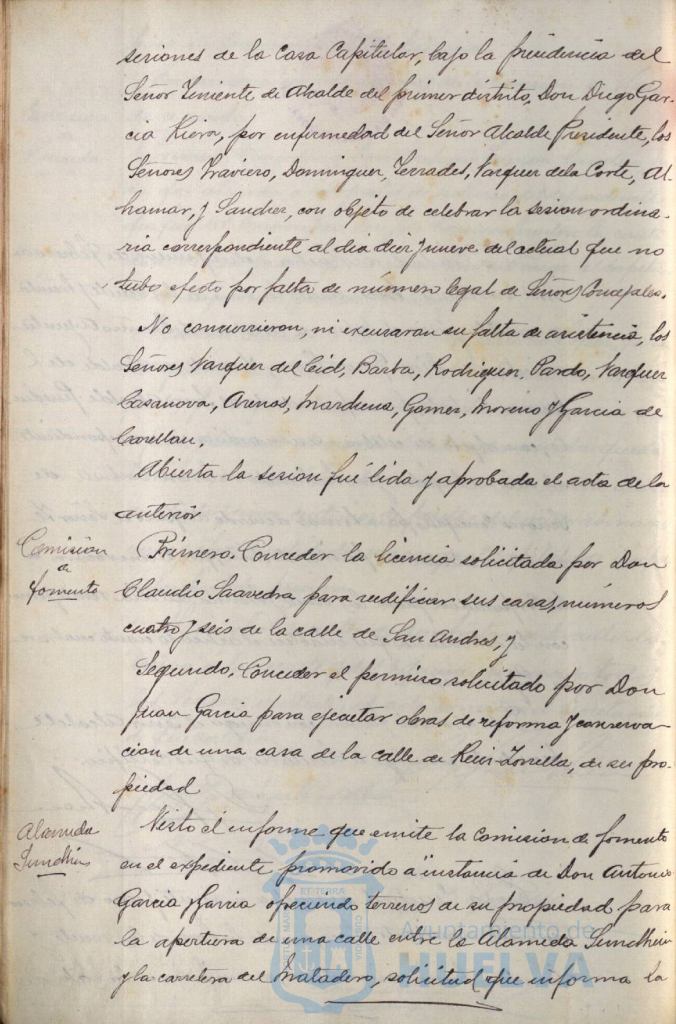 sesiones de la Casa Capitular, bajo la presidencia del
Señor Teniente de Alcalde del primer distrito, Don Diego Gar-
cia Riera, por enfermedad del Señor Alcalde Presidente, los
Señores Traviero, Dominguez, Terrades, Vazquez de la Corte, Al-
hamar, y Sanchez, con objeto de celebrar la sesion ordina-
ria correspondiente al dia diez y nueve del actual que no
tubo efecto por falta de número legal de Señores Concejales.
No concurrieron, ni excusaron su falta de asistencia, los
Señores Vazquez del Cid, Barba, Rodriguez, Pardo, Vazquez
Casanova, Arenas, Gomez, Moreno y Garcia de
Abierta la sesion fué lida y aprobada el acta de la
anterior
Comision
de
fomento
Primero. Conceder la licencia solicitada por Don
Claudio Saavedra para redificar sus casas, números
cuatro y seis de la calle de San Andres, y
Segundo. Conceder el permiso solicitado por Don
Juan Garcia para ejecutar obras de reforma y conserva-
cion de una casa de la calle de Ruiz-Zorrilla, de su pro-
piedad
Alameda
Sundhein
Visto el informe que emite la Comision de fomento
en el expediente promovido a instancia de Don Antonio
Garcia y Garcia ofreciendo terrenos de su propiedad para
la apertura de una calle entre la Alameda Sundhein
y la carretera del Matadero, solicitud que informa la
Ayuntamiento de
HUELVA